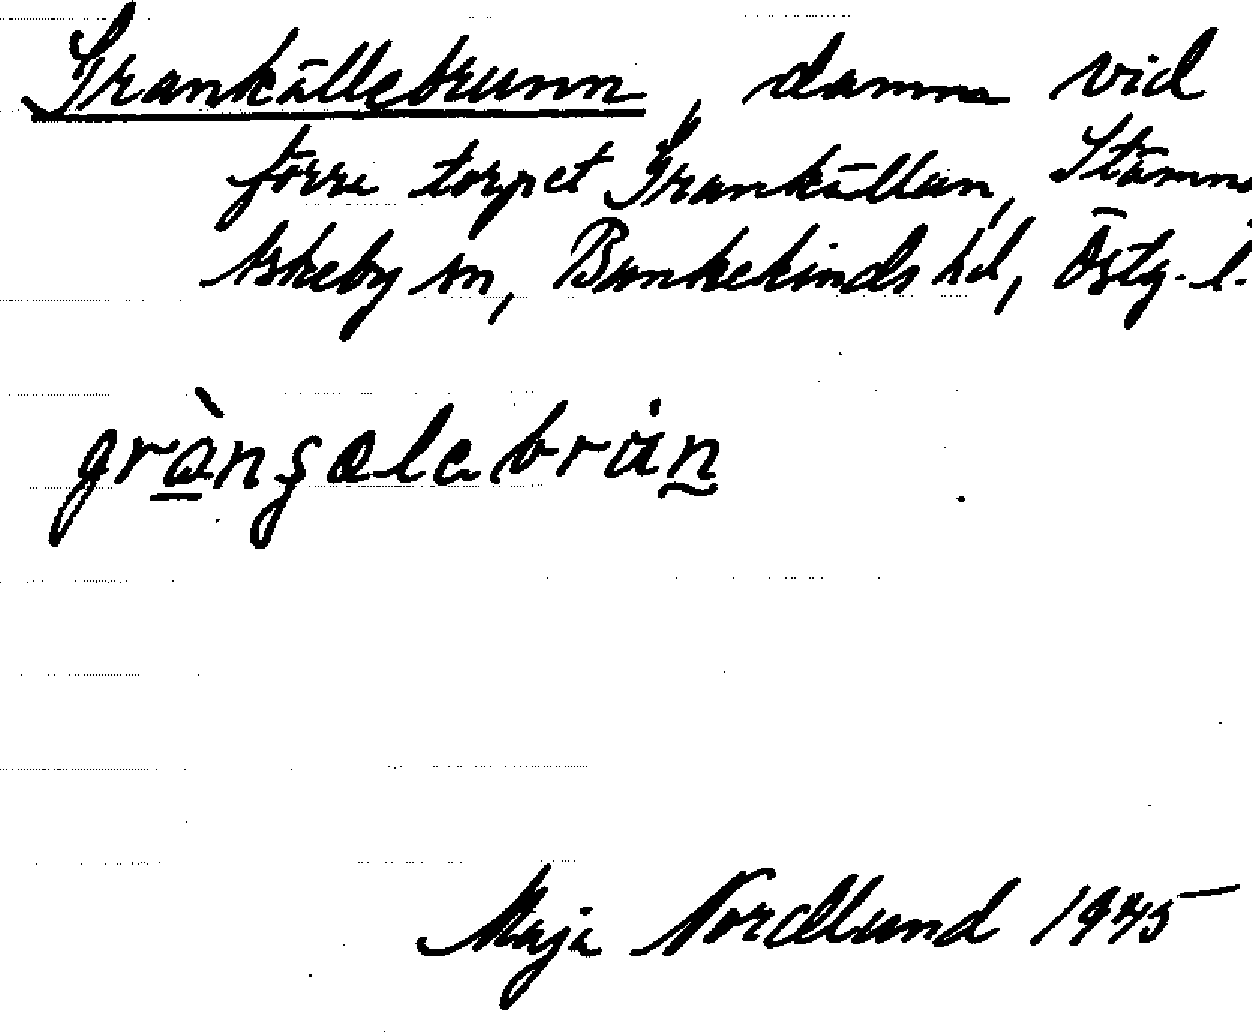 Grankällebrunn, damm vid
förre torpet Grankällan, Stämma
Askeby sn, Bankekinds hd, Östg. l.
gràngælebrån
Maja Nordlund 1945